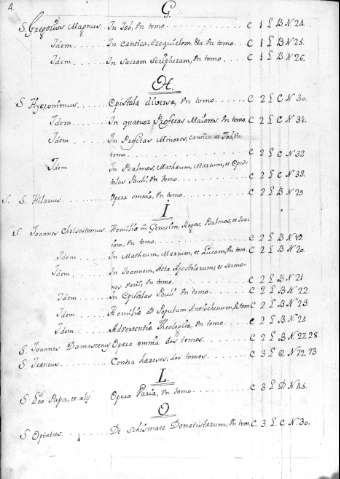 G.
S. Gregorius Magnus. In Job, Un tomo. C 1 L B N 24.
Idem In cantica, Ezequielem Un tomo. C 1 L B N 25.
Idem In Sacram Scripturam, Un tomo. C 1 L B N 26.
H.
S. Hyeronimus. Epistola diversæ, Un tomo. C 2 L C N 30.
Idem In quatuor Profetas Maiores, Un tomo. C 2 L C N 31.
Idem In Profetas Minores,
tomo. C 2 L C N 32
Idem In Psalmos, Matheum Marcum, et Epis-
tolas Pauli, Un tomo. C 2 L C N 33.
S. S. Hilarius Opera omnia, Un tomo. C 2 L B N 20
I
S. Joannis Chrisostomus Homiliæ in Genesim Psalmos, et
Un tomo. C 2 L B N 19.
Idem In Matheum, Marcum, et Lucam, Un tom. C 2 L B N 20.
Idem In Joannem, Acta Apostolorum, et
Un tomo. C 2 L B N 21
Idem In Epistolas Pauli Un tomo. C 2 L B N 22
Idem Homiliæ D Populum C 2 L B N 23
Idem Un tomo. C 2 L B N 24
S. Joannis Damascenus Opera omnia dos tomos. C 2 L B N 27 28.
S. Ireneus Contra hæreses, dos tomos. C 3 L C N 22 23
L.
S. Leo Papa, et alij Opera Varia, Un tomo. C 3 L D N 25.
O
S. Optatus De Schismate Donatistarum, Un tom. C 3 L C N 30.